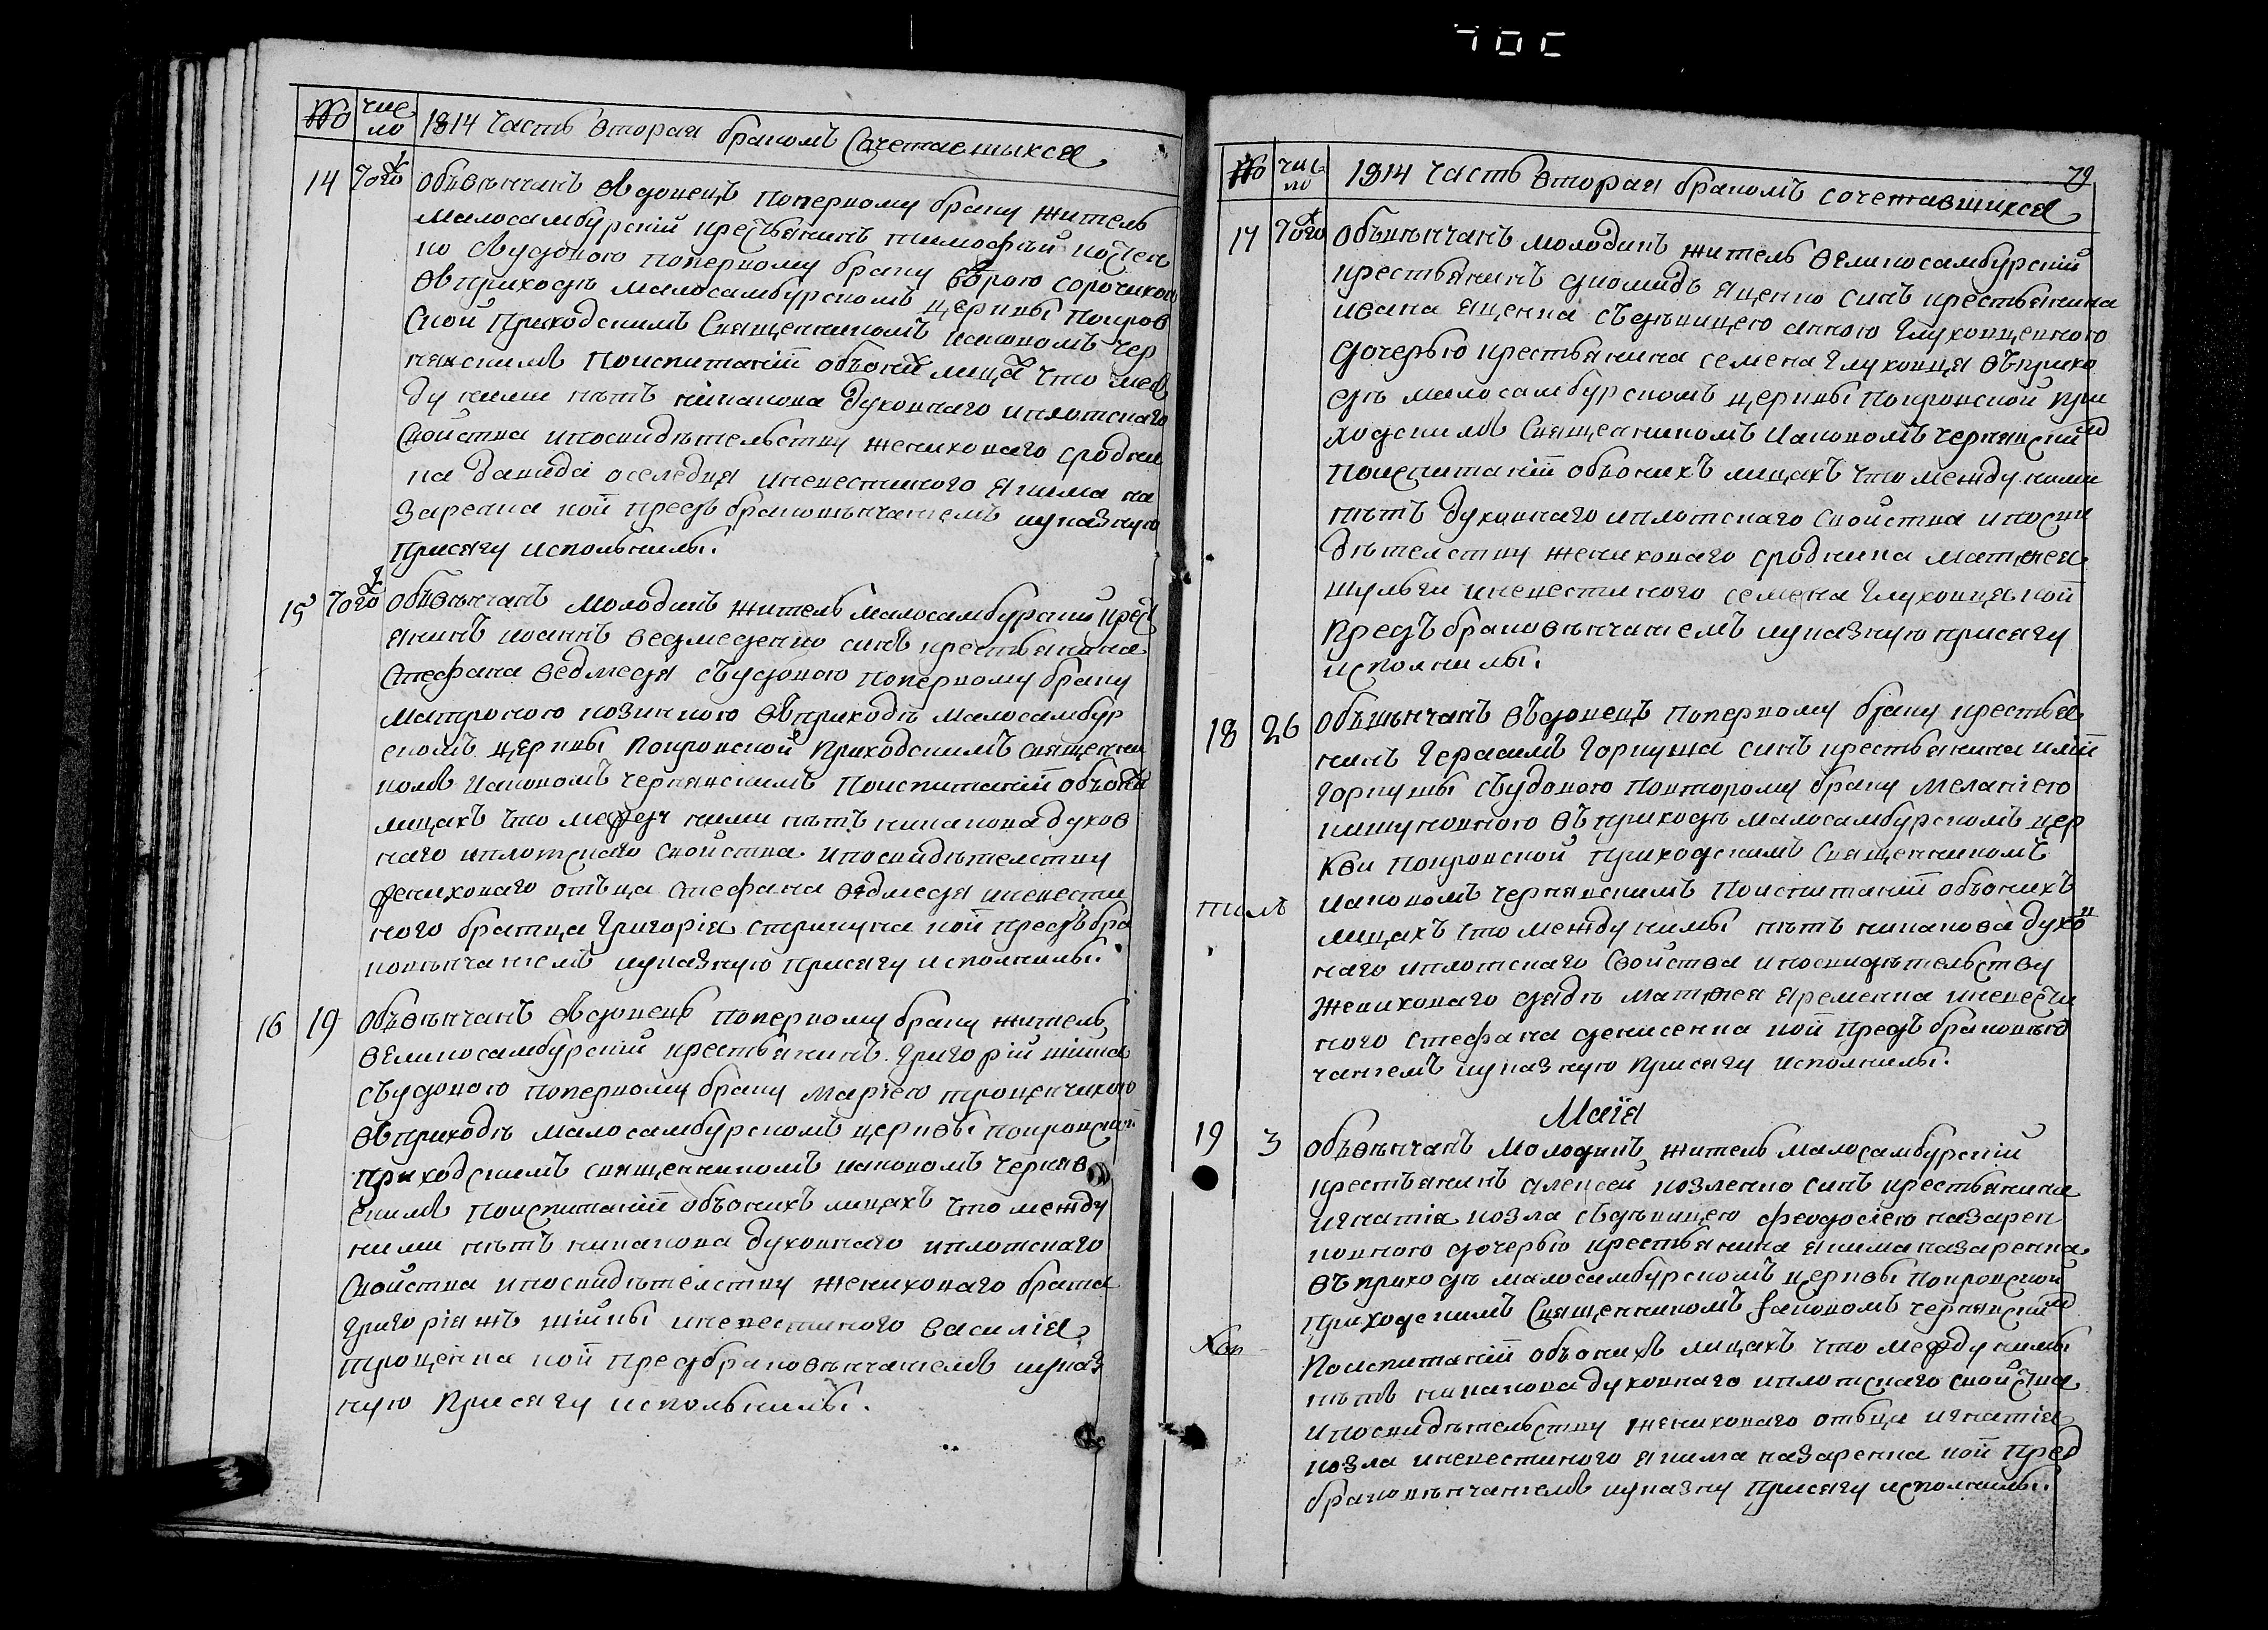 № число 1814 Часть вторая бракомъ Сочетавшыхся
14 Того ж Объвѣнчанъ вдовецъ поперъвому браку житель
Малосамбурскій крестьянинъ тимофѣй костен
ко съ вудовою поперъвому браку
въ приходѣ малосамбурскомъ церквы покров
ской Приходскимъ Священникомъ иаковомъ чер
нявскимъ поиспитаніи объоних лицах что меж
ду ними нѣтъ никакова духовнаго иплотскаго
Свойства ипосвидѣтельству жениховаго сродни
ка данида оселедця иневестиного якима на
заренка кои предъ браковѣнчаніемъ иуказную
присягу исполънилы.
15 Того ж Объвѣнчанъ молодикъ житель малосамбурский крест
янинъ иоаннъ ведмеденко синъ крестьянина
Стефана ведмедя съ удовою поперъвому браку
матроною козинною въ приходѣ малосамбур
скомъ церквы покровской приходскимъ священни
комъ иаковомъ чернявскимъ поиспитаніи объоних
лицахъ что между ними нѣтъ никакова духов
наго иплотскаго свойства ипосвидѣтелству
жениховаго отъца стефана ведмедя иневести
ного братца григорія стрикуна кои предъ бра
ковѣнчаніемъ иуказную присягу исполнилы.
16 19 Объвѣнчанъ вдовецъ поперъвому браку житель
великосамбурскій крестьянинъ григорій шійка
съ удовою поперъвому браку маріею троценчихою
въ приходѣ малосамбурскомъ церквы покровской
приходскимъ священникомъ иаковомъ черняв
скимъ поиспитаніи объонихъ лицахъ что между
ними нѣтъ никакова духовнаго иплотскаго
Свойства ипосвидѣтелству жениховаго брата
григорія жъ шійкы иневестиного василія
троценка кои предъ браковѣнчаніемъ иуказ
ную присягу исполънилы.
79
№ число 1814 Часть вторая бракомъ сочетавшихся
17 Того ж Объвѣнчанъ молодикъ житель великосамбурскій
крестьянинъ диомидъ яценко синъ крестьянина
ивана яценка съ дѣвицею анною глуховценною
дочерью крестьянина семена глуховця въ прихо
дѣ малосамбурскомъ церквы покровской при
ходскимъ Священникомъ иаковомъ чернявским
поиспитаніи объонихъ лицахъ что между ними
нѣтъ духовнаго иплотскаго свойства ипосви
дѣтелству жениховаго сродника матвея
шульги иневестиного семена глуховця кои
предъ браковѣнчаніемъ иуказную присягу
исполнилы.
18 26 Объвѣнчанъ въдовецъ поперъвому браку крестья
нинъ Герасимъ Горкуша синъ крестьянина иліи
Горкушы съ удовою повторому браку меланіею
въ приходѣ малосамбурскомъ цер
кви покровской приходскимъ священникомъ
иаковомъ чернявскимъ поиспитаніи объонихъ
лицахъ что между нимы нѣтъ никакова духо
внаго иплотскаго свойства ипосвидѣтельству
жениховаго дядѣ матвея яременка иневести
ного стефана денисенка кои предъ браковѣн
чаніемъ иуказную присягу исполнилы.
Маія
19 3 объвѣнчанъ молодикъ житель малосамбурскій
крестьянинъ алексей козленко синъ крестьянина
игнатія козла съ дѣвицею феодосіею назарен
ковною дочерью крестьянина якима назаренка
въ приходѣ малосамбурскомъ церквы покровской
приходскимъ Священникомъ іаковомъ чернявским
поиспитаніи объонихъ лицахъ что между нимы
нѣтъ никакова духовнаго иплотскаго свойства
ипосвидѣтельству жениховаго отъца игнатія
козла иневестиного якима назаренка кои пред
браковѣнчаніемъ иуказну присягу исполнилы.